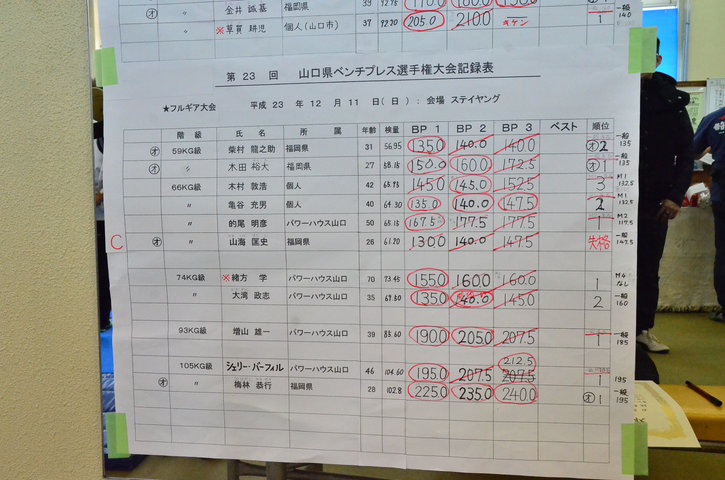 オ 〃 金井 誠基 福岡県 39 92.75 170.0 180.0 190.0 一般 140
※ 草賀 耕児 個人(山口市) 37 92.20 205.0 210.0 1
第 23 回 山口県ベンチプレス選手権大会記録表
★フルギア大会 平成 23 年 12 月 11 日(日): 会場 ステイヤング
階 級 氏 名 所 属 年齢 検量 BP 1 BP 2 BP 3 ベスト 順位
オ 59KG級 柴村 龍之助 福岡県 31 56.95 135.0 140.0 140.0 オ 2 一般 135
オ 〃 木田 裕大 福岡県 27 58.15 150.0 160.0 172.5 オ 1 一般 135
66KG級 木村 敦浩 個人 42 65.75 145.0 145.0 152.5 3 M1 132.5
〃 亀谷 充男 個人 40 64.30 135.0 140.0 147.5 2 M1 132.5
〃 的尾 明彦 パワーハウス山口 50 65.15 167.5 177.5 177.5 1 M2 117.5
C オ 〃 山海 匡史 福岡県 26 61.20 130.0 140.0 147.5 失格 一般 147.5
74KG級 ※ 緒方 学 パワーハウス山口 70 73.45 155.0 160.0 160.0 1 M4 なし
〃 大湾 政志 パワーハウス山口 35 69.60 135.0 140.0 145.0 2 一般 160
93KG級 増山 雄一 パワーハウス山口 39 83.60 190.0 205.0 207.5 1 一般 185
212.5
105KG級 シェリー・バーフォル パワーハウス山口 46 104.60 195.0 207.5 207.5 1 195
オ 〃 梅林 恭行 福岡県 28 102.8 225.0 235.0 240.0 オ 1 一般 195